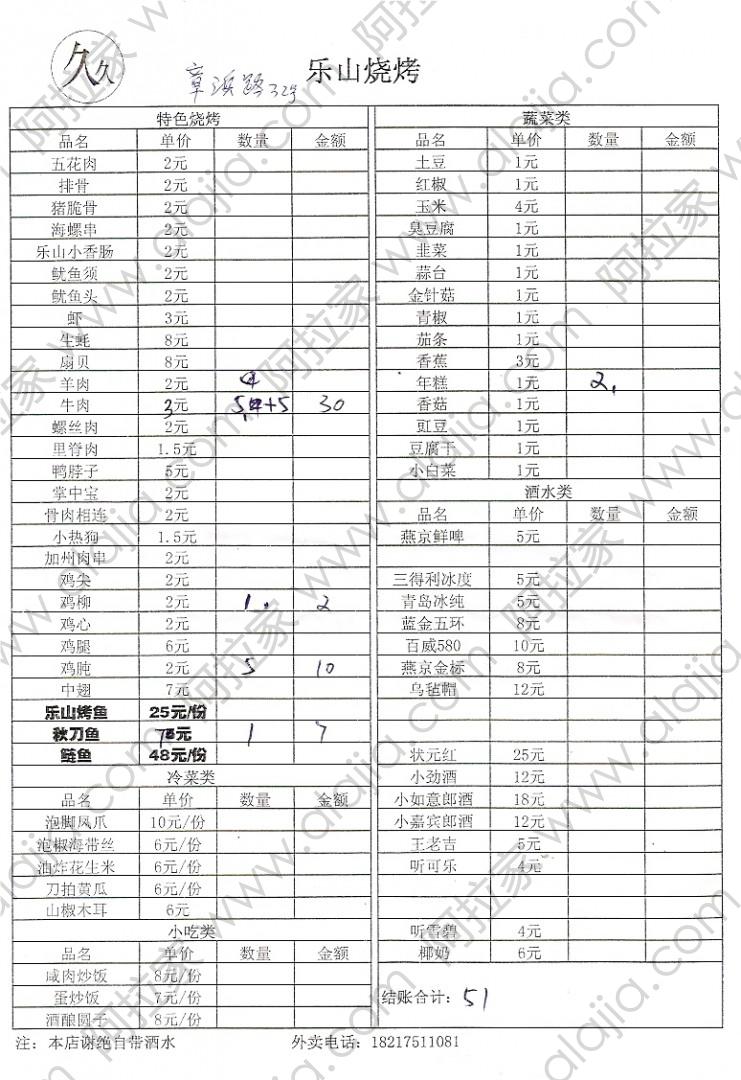 久久
章浜路32号
乐山烧烤
特色烧烤
品名 单价 数量 金额
五花肉 2元
排骨 2元
猪脆骨 2元
海螺串 2元
乐山小香肠 2元
鱿鱼须 2元
鱿鱼头 2元
虾 3元
生蚝 8元
扇贝 8元
羊肉 2元
牛肉 3元 +5 30
螺丝肉 2元
里脊肉 1.5元
鸭脖子 5元
掌中宝 2元
骨肉相连 2元
小热狗 1.5元
加州肉串 2元
鸡尖 2元
鸡柳 2元 1 2
鸡心 2元
鸡腿 6元
鸡肫 2元 5 10
中翅 7元
乐山烤鱼 25元/份
秋刀鱼 7元 1 7
鲢鱼 48元/份
冷菜类
品名 单价 数量 金额
泡脚凤爪 10元/份
泡椒海带丝 6元/份
油炸花生米 6元/份
刀拍黄瓜 6元/份
山椒木耳 6元
小吃类
品名 单价 数量 金额
咸肉炒饭 8元/份
蛋炒饭 7元/份
酒酿圆子 8元/份
蔬菜类
品名 单价 数量 金额
土豆 1元
红椒 1元
玉米 4元
臭豆腐 1元
韭菜 1元
蒜台 1元
金针菇 1元
青椒 1元
茄条 1元
香蕉 3元
年糕 1元 2
香菇 1元
豇豆 1元
豆腐干 1元
小白菜 1元
酒水类
品名 单价 数量 金额
燕京鲜啤 5元
三得利冰度 5元
青岛冰纯 5元
蓝金五环 8元
百威580 10元
燕京金标 8元
乌毡帽 12元
状元红 25元
小劲酒 12元
小如意郎酒 18元
小嘉宾郎酒 12元
王老吉 5元
听可乐 4元
听雪碧 4元
椰奶 6元
结账合计：51
注：本店谢绝自带酒水 外卖电话：18217511081
阿拉家 www.alajia.com